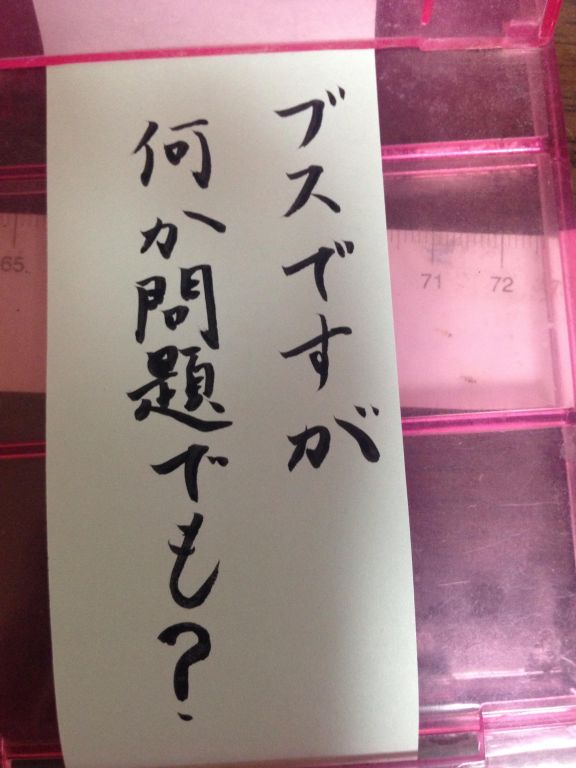 ブスですが
何か問題でも?
65
71
72